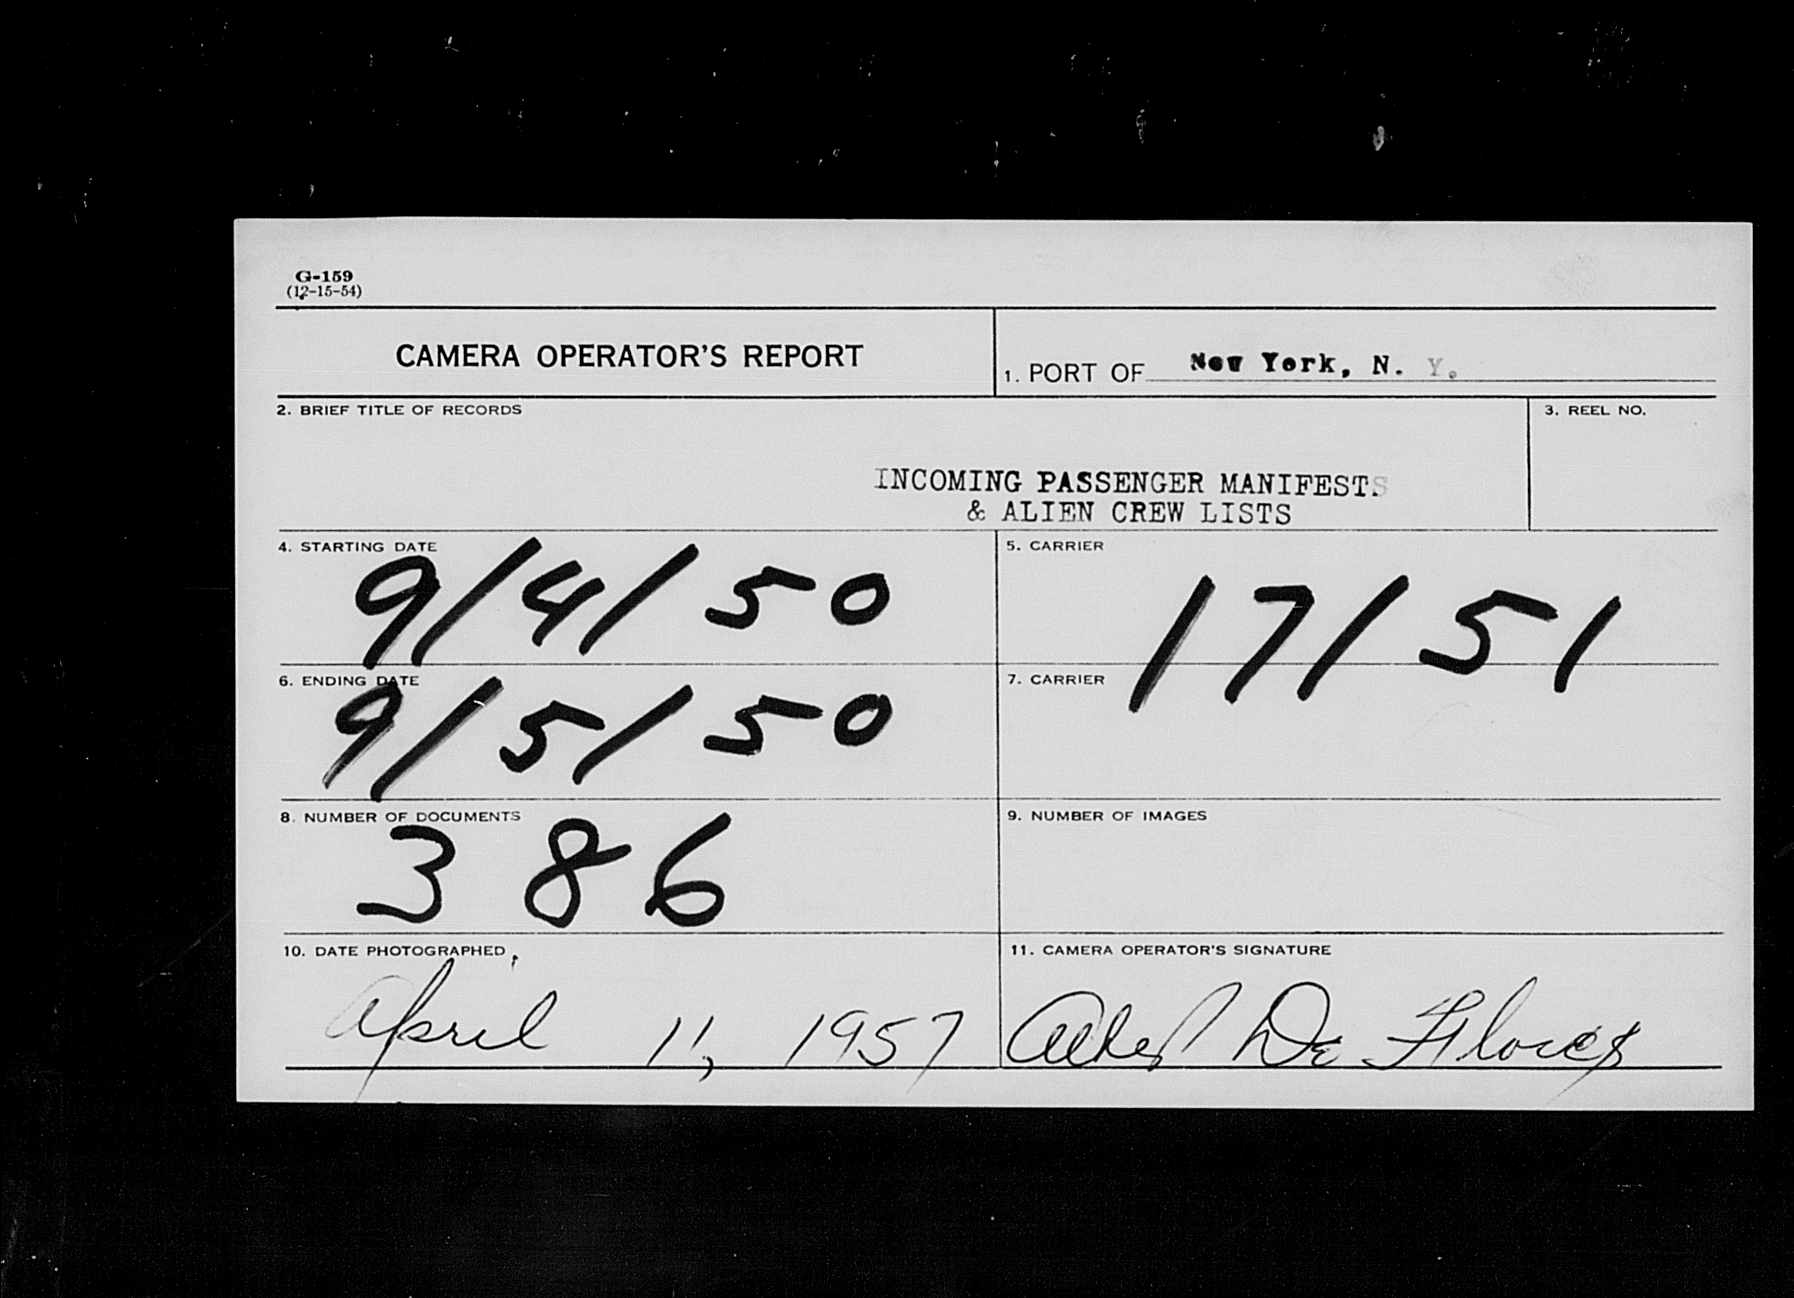 G-159
(12-15-54)
CAMERA OPERATOR'S REPORT
1. PORT OF New York, N. Y.
2. BRIEF TITLE OF RECORDS
3. REEL NO.
INCOMING PASSENGER MANIFESTS
& ALIEN CREW LISTS
4. STARTING DATE
9/4/50
5. CARRIER
17151
6. ENDING DATE
9/5/50
7. CARRIER
8. NUMBER OF DOCUMENTS
386
9. NUMBER OF IMAGES
10. DATE PHOTOGRAPHED
April 11, 1957
11. CAMERA OPERATOR'S SIGNATURE
De Flores